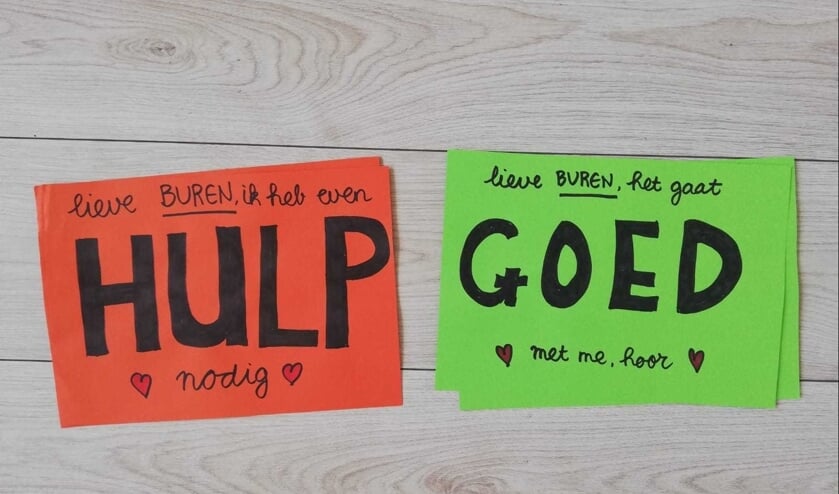 lieve BUREN, ik heb even
HULP
nodig
lieve BUREN, het gaat
GOED
met me, hoor